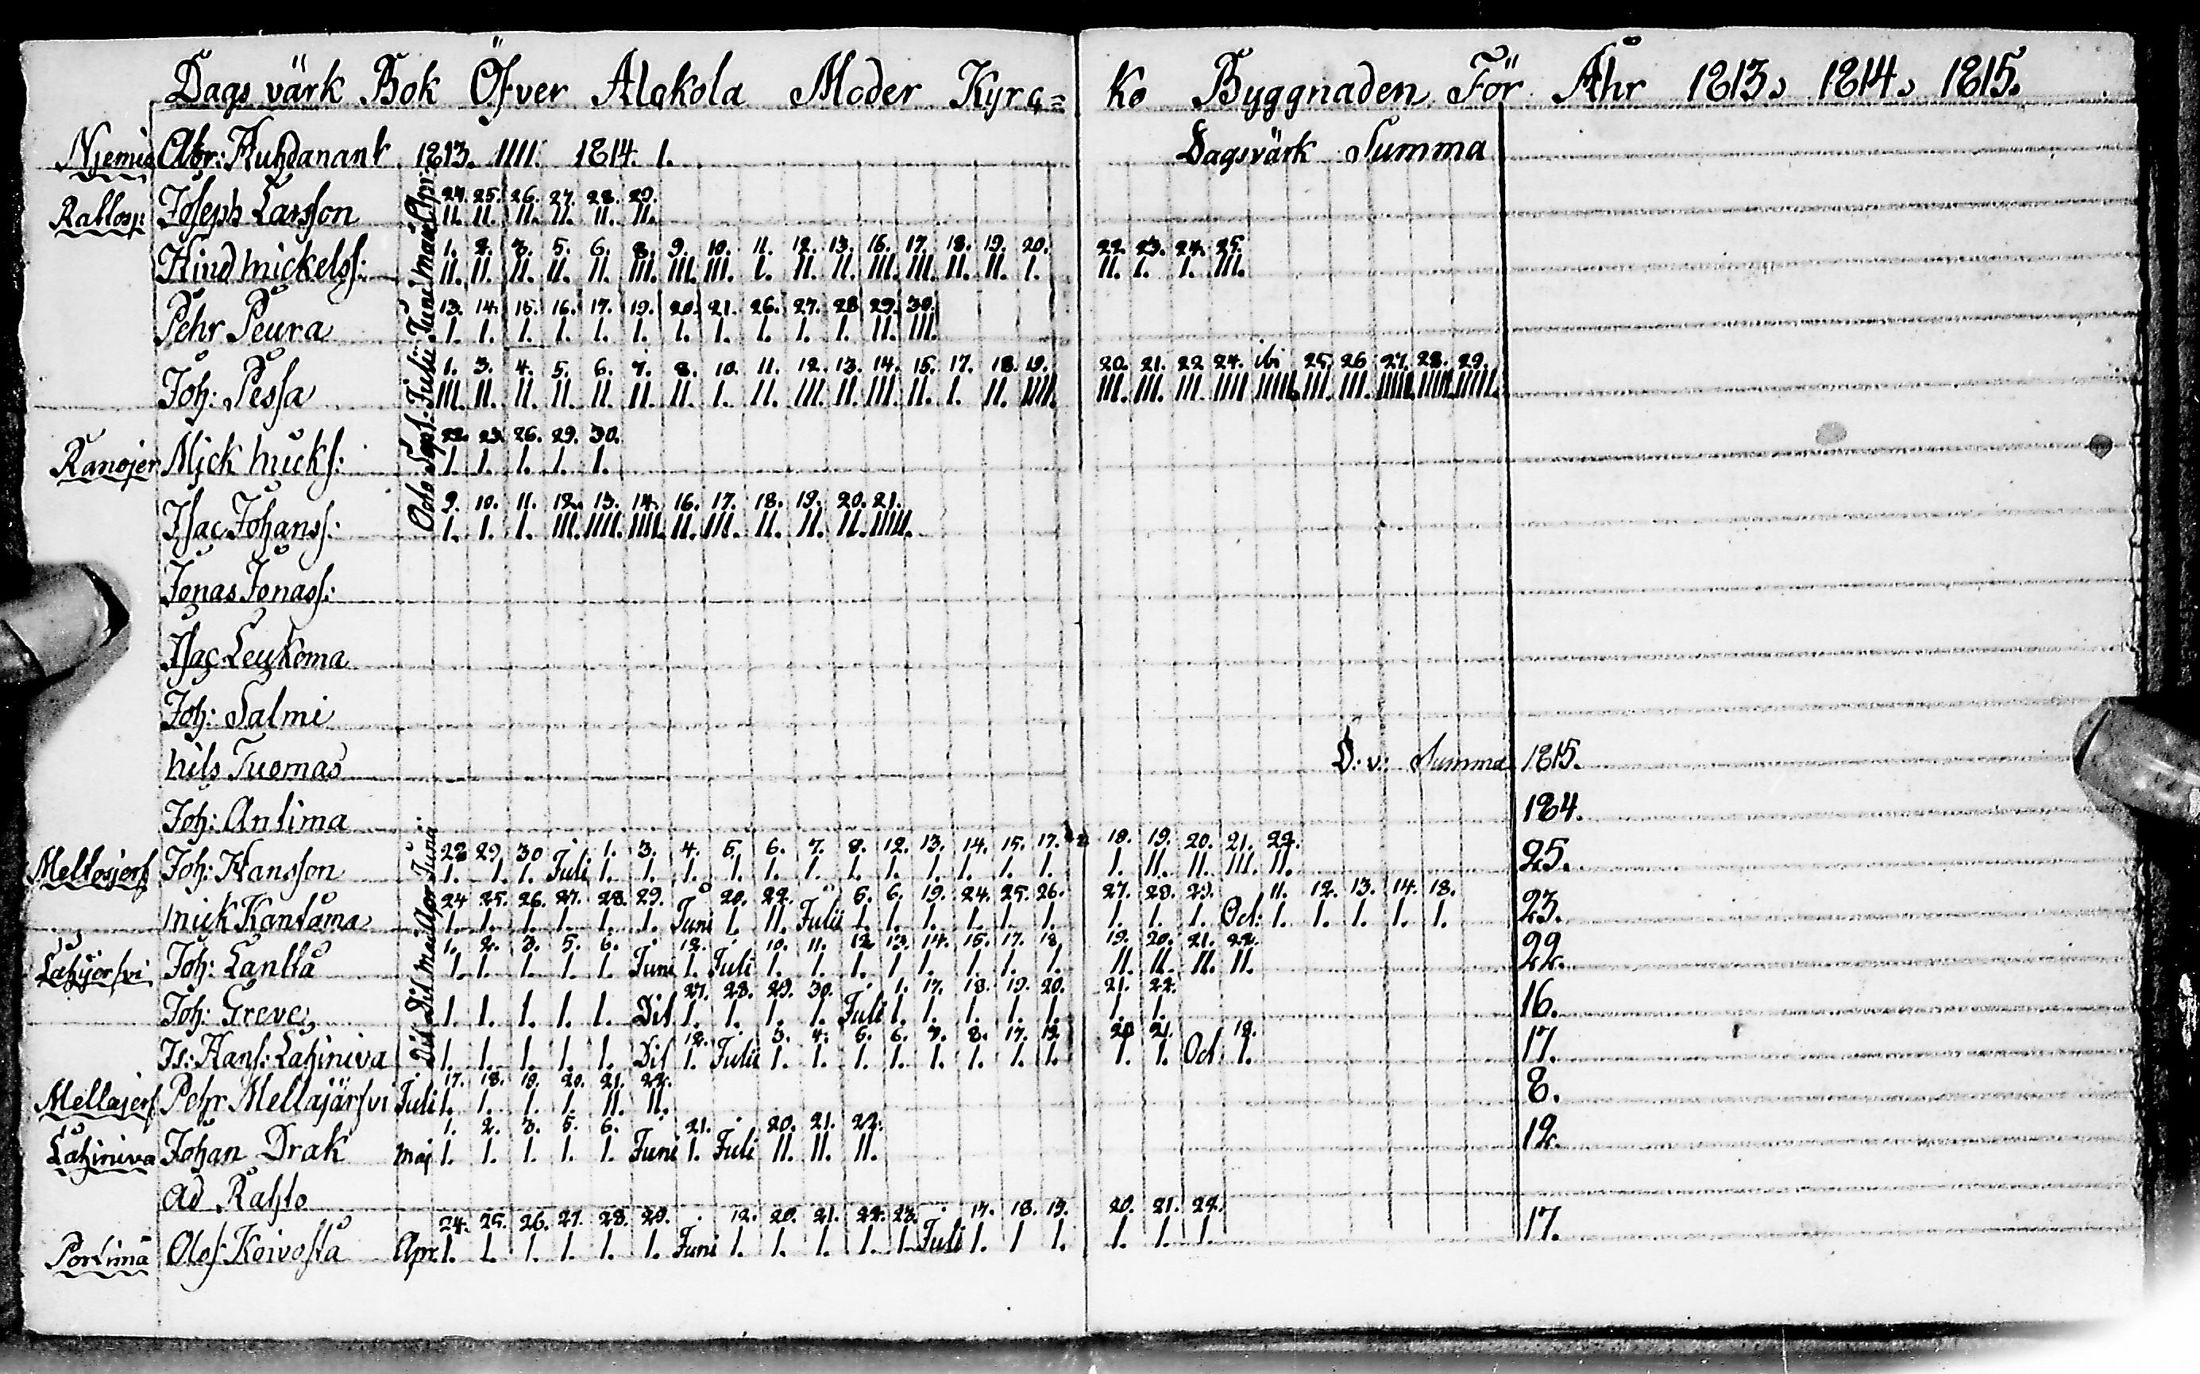 Dags värk Bok Öfver Alakola Moder Kyrc= ko Byggnaden För Åhr 1813. 1814. 1815.
Niemis Abr: 1813. IIII. 1814. I. Dagsvärk Summa
24. 25. 26. 27. 28. 29.
Rattosj: Joseph Larsson Apr: II. II. II. II. II. II.
1. 2. 3. 5. 6. 8. 9. 10. 11. 12. 13. 16. 17. 18. 19. 20. 22. 23. 24. 25.
Hind mickelss: maij II. II. II. II. II. III. III. III. I. II. II. III. III. II. II. I. II. I. I. III.
13. 14. 15. 16. 17. 19. 20. 21. 26. 27. 28 29. 30.
Pehr Peura Junii I. I. I. I. I. I. I. I. I. I. I. II. III.
1. 3. 4. 5. 6. 7. 8. 10. 11. 12. 13. 14. 15. 17. 18. 19. 20. 21. 22 24. ibi 25. 26 27. 28. 29.
Joh: Pessa Julii III. II. II. II. II. II. II. I. II. III. II. III. II. I. II. IIII. III. III. III. IIII IIIII. III. III. IIIII. IIII. IIIII.
22. 23. 26. 29. 30.
Ranojer Mick hucks: Sept: I. I. I. I. I.
9. 10. 11. 12. 13. 14. 16. 17. 18. 19. 20. 21.
Isac Johanss: Octo I. I. I. III. IIII. IIII. II. III. II. II. II. IIIII.
Jonas Jonass:
Isac Leukoma
Joh: Salmi
nils Tuomas D: v: Summa 1815.
Joh: Antima 184.
28 29. 30 1. 3. 4. 5. 6. 7. 8. 12. 13. 14. 15. 17. 18. 19. 20. 21. 22.
Mellosjerf Joh: Hansson Juni I. I. I. Juli I. I. I. I. I. I. I. I. I. I. I. I. I. II. II. III. II. 25.
24 25. 26. 27. 28. 29. 20. 22. 5. 6. 19. 24. 25. 26. 27. 28. 29. 11. 12. 13. 14. 18.
mick Kantama Apr I. I. I. I. I. I. Juni I. II. Julii I. I. I. I. I. I. I. I. I. Oct: I. I. I. I. I. 23.
1. 2. 3. 5. 6. 12. 10. 11. 12 13. 14. 15. 17. 18. 19. 20. 21. 22.
Joh: Lantta maij I. I. I. I. I. Juni I. Juli I. I. I. I. I. I. I. I. II. II. II. II. 22.
27. 28. 29. 30. 1. 17. 18. 19. 20. 21. 22.
Joh: Greve Dit I. I. I. I. I. Dit I. I. I. I. Juli I. I. I. I. I. I. I. 16.
12. 3. 4. 5. 6. 7. 8. 17. 19. 20 21. 18.
Is: Hans: Lahiniva Dit I. I. I. I. I. Dit I. Julii I. I. I. I. I. I. I. I. I. I. Oct: I. 17.
17. 18. 19. 20. 21. 22.
Mellajerf Pehr Mellajärfvi Juli I. I. I. I. II. II. 8.
1. 2. 3. 5. 6. 21. 20. 21. 22.
Lahiniva Johan Drak maj I. I. I. I. I. Juni I. Juli II. II. II. 12.
Ad Rahto
24. 25. 26. 27. 28. 29. 12. 20. 21. 22. 23. 17. 18. 19. 20. 21. 22.
Portima Olof Koivosta Apr. I. I. I. I. I. I. Juni I. I. I. I. I. Juli I. I I. I. I. I. 17.